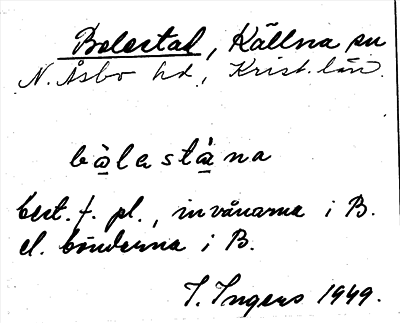 Bolestad, Källna sn
N. Åsbo hd., Krist. län.
bàlastàna
best. f. pl., invånarna i B.
el. bönderna i B.
I. Ingers 1949.